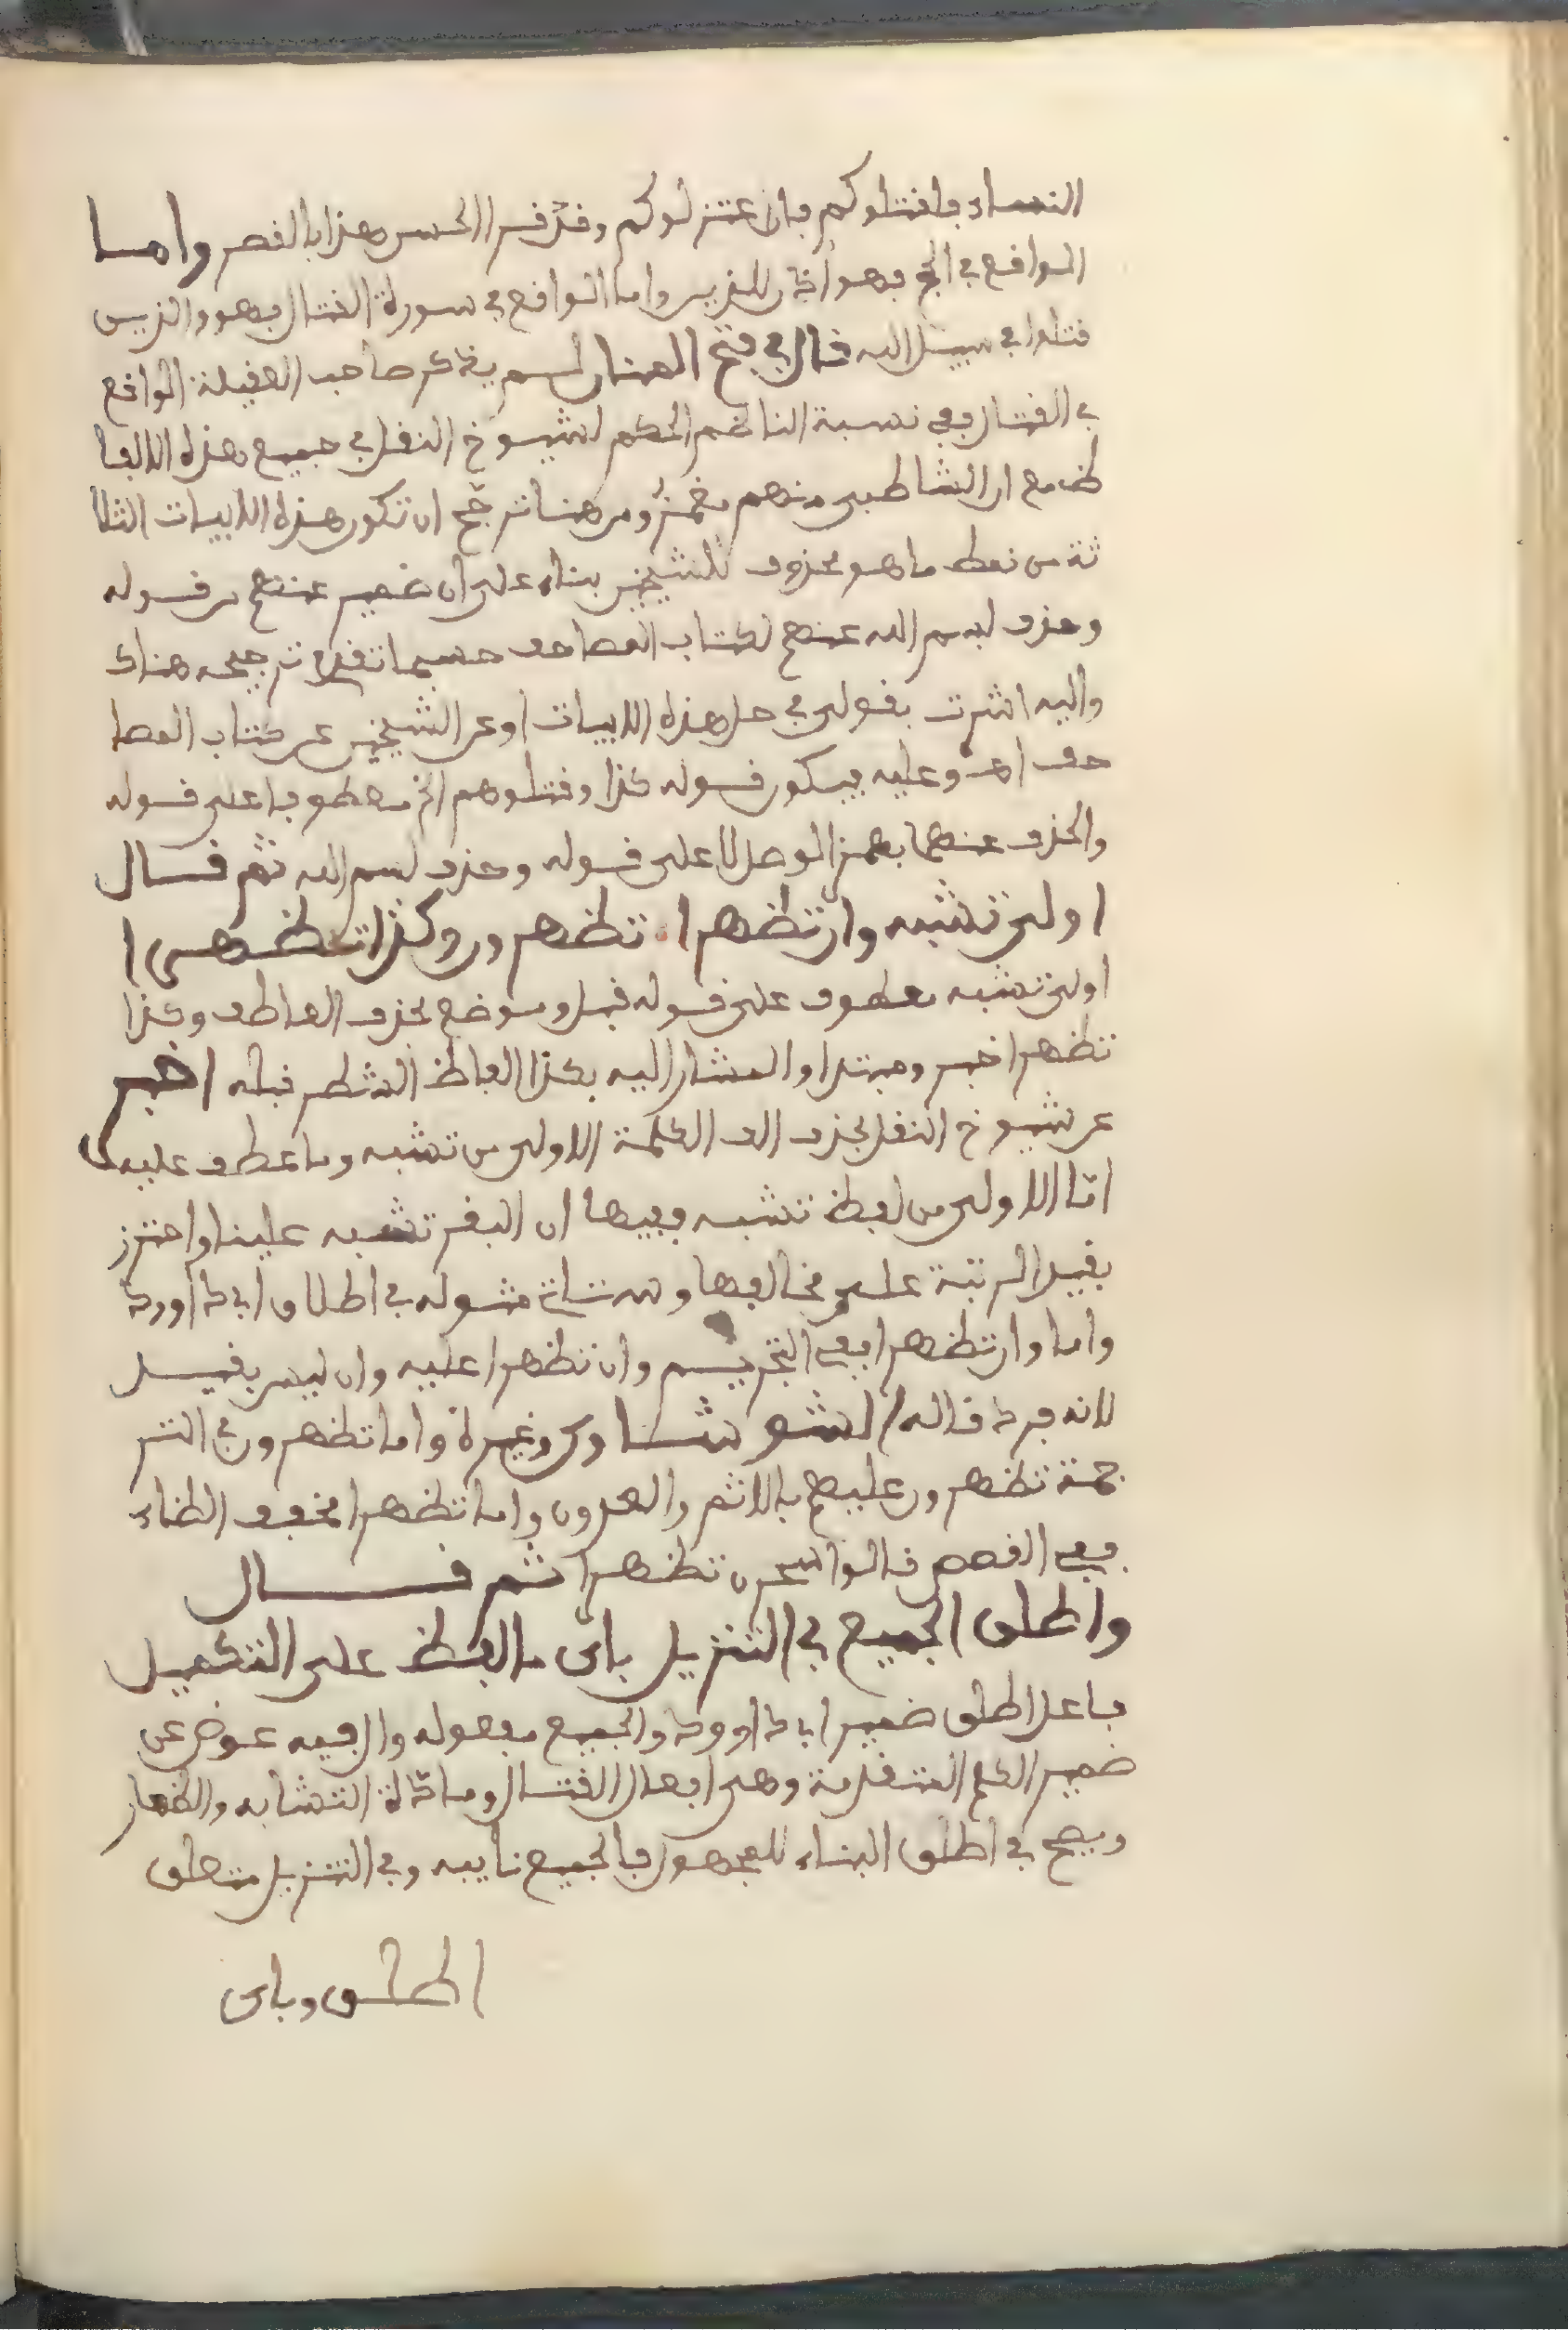 النساء فلقتلوكم فان اعتزلوكم وقد قرا الحسن هذا بالقصر واما
الواقع في الحج فهو اذن للذين واما الواقع في سورة القتال فهو والذين
قتلوا في سبيل الله قال في فتح المنان لم يذكر صاحب العقيلة الواقع
في القتال ففي نسبة الناظم الحكم لشيوخ النقل في جميع هذه الالفا
ظ مع ان الشاطبي منهم ومن هنا ترجح ان تكون هذه الابيات الثلا
ثة من نمط ما هو محذوف للشيخين بناء على ان ضمير عنهم من قوله
وحذف لبسم الله عنهم لكتاب المصاحف حسبما تقدم ترجيحه هناك
واليه اشرت بقولي في حل هذه الابيات اوعن الشيخين عن كتاب المصا
حف اهـ وعليه فيكون قوله كذا وقتلوهم الخ معطوفا على قوله
والحذف عنهما بهمز الوصل لا على قوله وحذف لبسم الله ثم قال
اولى تشبه وان تظهرا تظهرون وكذا تظهرا
اولى تشبه معطوف على قوله قبل وموضع بحذف العاطف وكذا
تظهرا خبر ومبتدا والمشار اليه بكذا الفاظ الشطر قبله اخبر
عن شيوخ النقل بحذف الف الكلمة الاولى من تشبه وما عطف عليه
اما الاولى من لفظ تشبه ففيها ان البقر تشبه علينا واحترز
بقيد الرتبة على مخالفها وستاتي مثوله في اطلاق ابي داوود
واما وان تظهرا ففي التحريم وان تظهرا عليه وان ليس بقيد
لانه فرد قاله الشوشاوي وغيره واما تظهرون في التر
جمة تظهرون عليهم بالاثم والعدون واما تظهرا مخفف الظاء
ففي القصص قالوا سحرن تظهرا ثم قال
واطلق الجميع في التنزيل باي ما لفظ على التكميل
فاعل اطلق ضمير ابا داوود والجميع مفعوله وال فيه عوض عن
ضمير الكلم المتقدمة وهي افعال القتال ومادة التشابه والظهار
ويصح في اطلق البناء للمجهول فالجميع نايبه وفي التنزيل متعلق
اطلق وباي